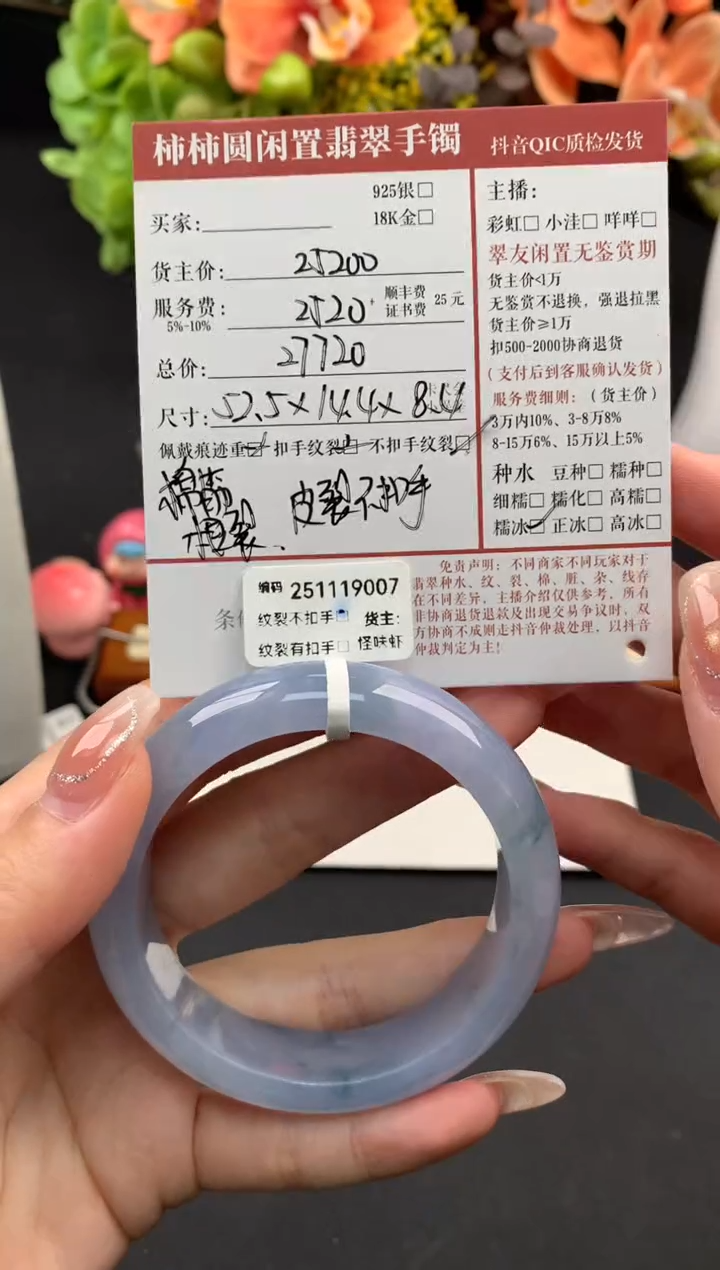 柿柿圆闲置翡翠手镯 抖音QIC质检发货
925银□
买家: 18K金□
货主价: 25200
服务费: 2520+ 顺丰费 证书费 25元
5%-10%
总价: 27720
尺寸: 52.5×14.4×8.4
佩戴痕迹重☑ 扣手纹裂□ 不扣手纹裂☑
棉
裂. 皮裂不扣手
主播:
彩虹□ 小洼□ 咩咩□
翠友闲置无鉴赏期
货主价<1万
无鉴赏不退换，强退拉黑
货主价≥1万
扣500-2000协商退货
(支付后到客服确认发货)
服务费细则: (货主价)
3万内10%、3-8万8%
8-15万6%、15万以上5%
种水 豆种□ 糯种□
细糯□ 糯化□ 高糯□
糯冰☑ 正冰□ 高冰□
免责声明: 不同商家不同玩家对于
翡翠种水、纹、裂、棉、脏、杂、线存
在不同差异，主播介绍仅供参考，所有
非协商退货退款及出现交易争议时，双
方协商不成则走抖音仲裁处理，以抖音
仲裁判定为主!
条
编码 251119007
纹裂不扣手□ 货主:
纹裂有扣手□ 怪味虾